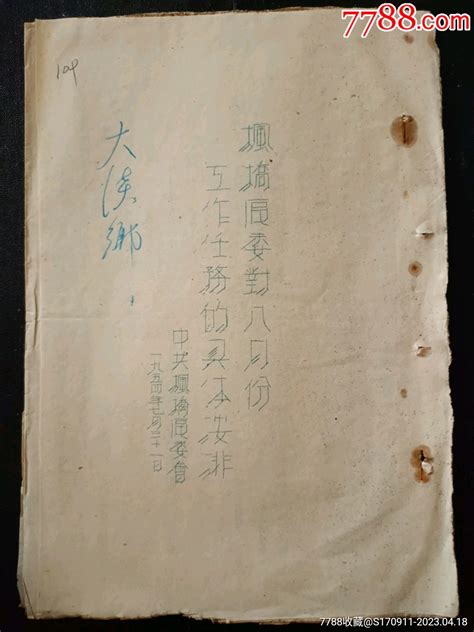 7788.com
楓橋區委對八月份
工作任務的具体安排
中共楓橋區委會
一九五四年七月二十一日
大 鄉
7788收藏@S170911-2023.04.18